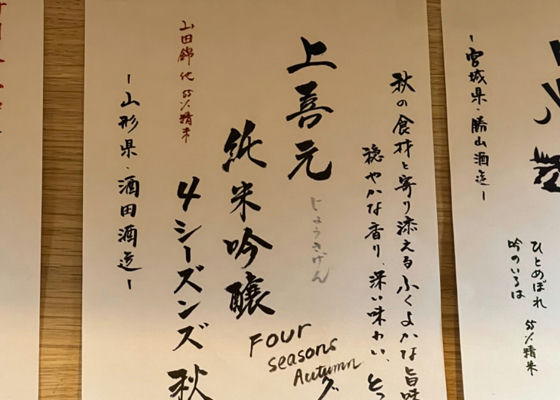 秋の食材と寄り添えるふくよかな旨味
穏やかな香り、深い味わい、とっ
上喜元
じょうきげん
純米吟醸
4シーズンズ 秋
Four
seasons
Autumn
山田錦他 55%精米
ー山形県・酒田酒造ー
ー宮城県・勝山酒造ー
ひとめぼれ 55%精米
吟のいろは